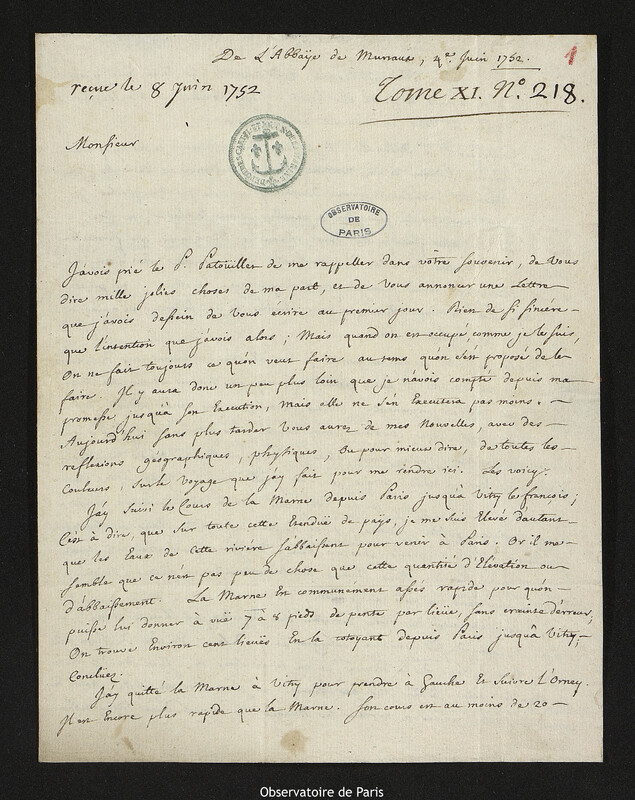 De L'Abbaÿe de Muraux, 4e. Juin 1752.
1
reçue le 8 Juin 1752
Tome XI. N.° 218.
Monsieur
OBSERVATOIRE
DE
PARIS
J'avois prié le P. Patoüillet de me rappeller dans vôtre souvenir, de vous
dire mille jolies choses de ma part, et de vous annoncer une Lettre
que j'avois dessein de vous ecrire au premier jour. Rien de si sincère-
que l'intention que j'avois alors ; Mais quand on est occupé comme je le suis,
On ne fait toujours ce qu'on veut faire au tems qu'on s'en proposé de le
faire. Il y aura donc un peu plus loin que je n'avois compté depuis ma
promesse jusqu'à son Execution, mais elle ne s'en Executera pas moins. -
Aujourd'hui sans plus tarder Vous aurez de mes Nouvelles, avec des -
reflexions géographiques, physiques, Ou pour mieux dire, de toutes les-
Couleurs, sur le Voyage que j'ay fait pour me rendre ici. Les voicy.
J'ay suivi le Cours de la Marne depuis Paris jusqu'à Vitry le françois ;
C'est à dire, que sur toute cette Etenduë de païs, je me suis Elevé d'autant-
que les Eaux de Cette rivière s'abbaissent pour venir à Paris. Or il me-
semble que ce n'est pas peu de chose que cette quantité d'Elevation ou
d'abbaissement. La Marne En communement assés rapide pour qu'on-
puisse lui donner à vuë 7 à 8 pieds de pente par lieüe, sans crainte d'erreur,
On trouve Environ cent lieües En la cotoyant depuis Paris jusqu'à Vitry,
Concluez.
J'ay quitté la Marne à Vitry pour prendre à Gauche Et suivre L'Orney.
Il est Encore plus rapide que la Marne. Son cours est au moins de 20 -
Observatoire de Paris